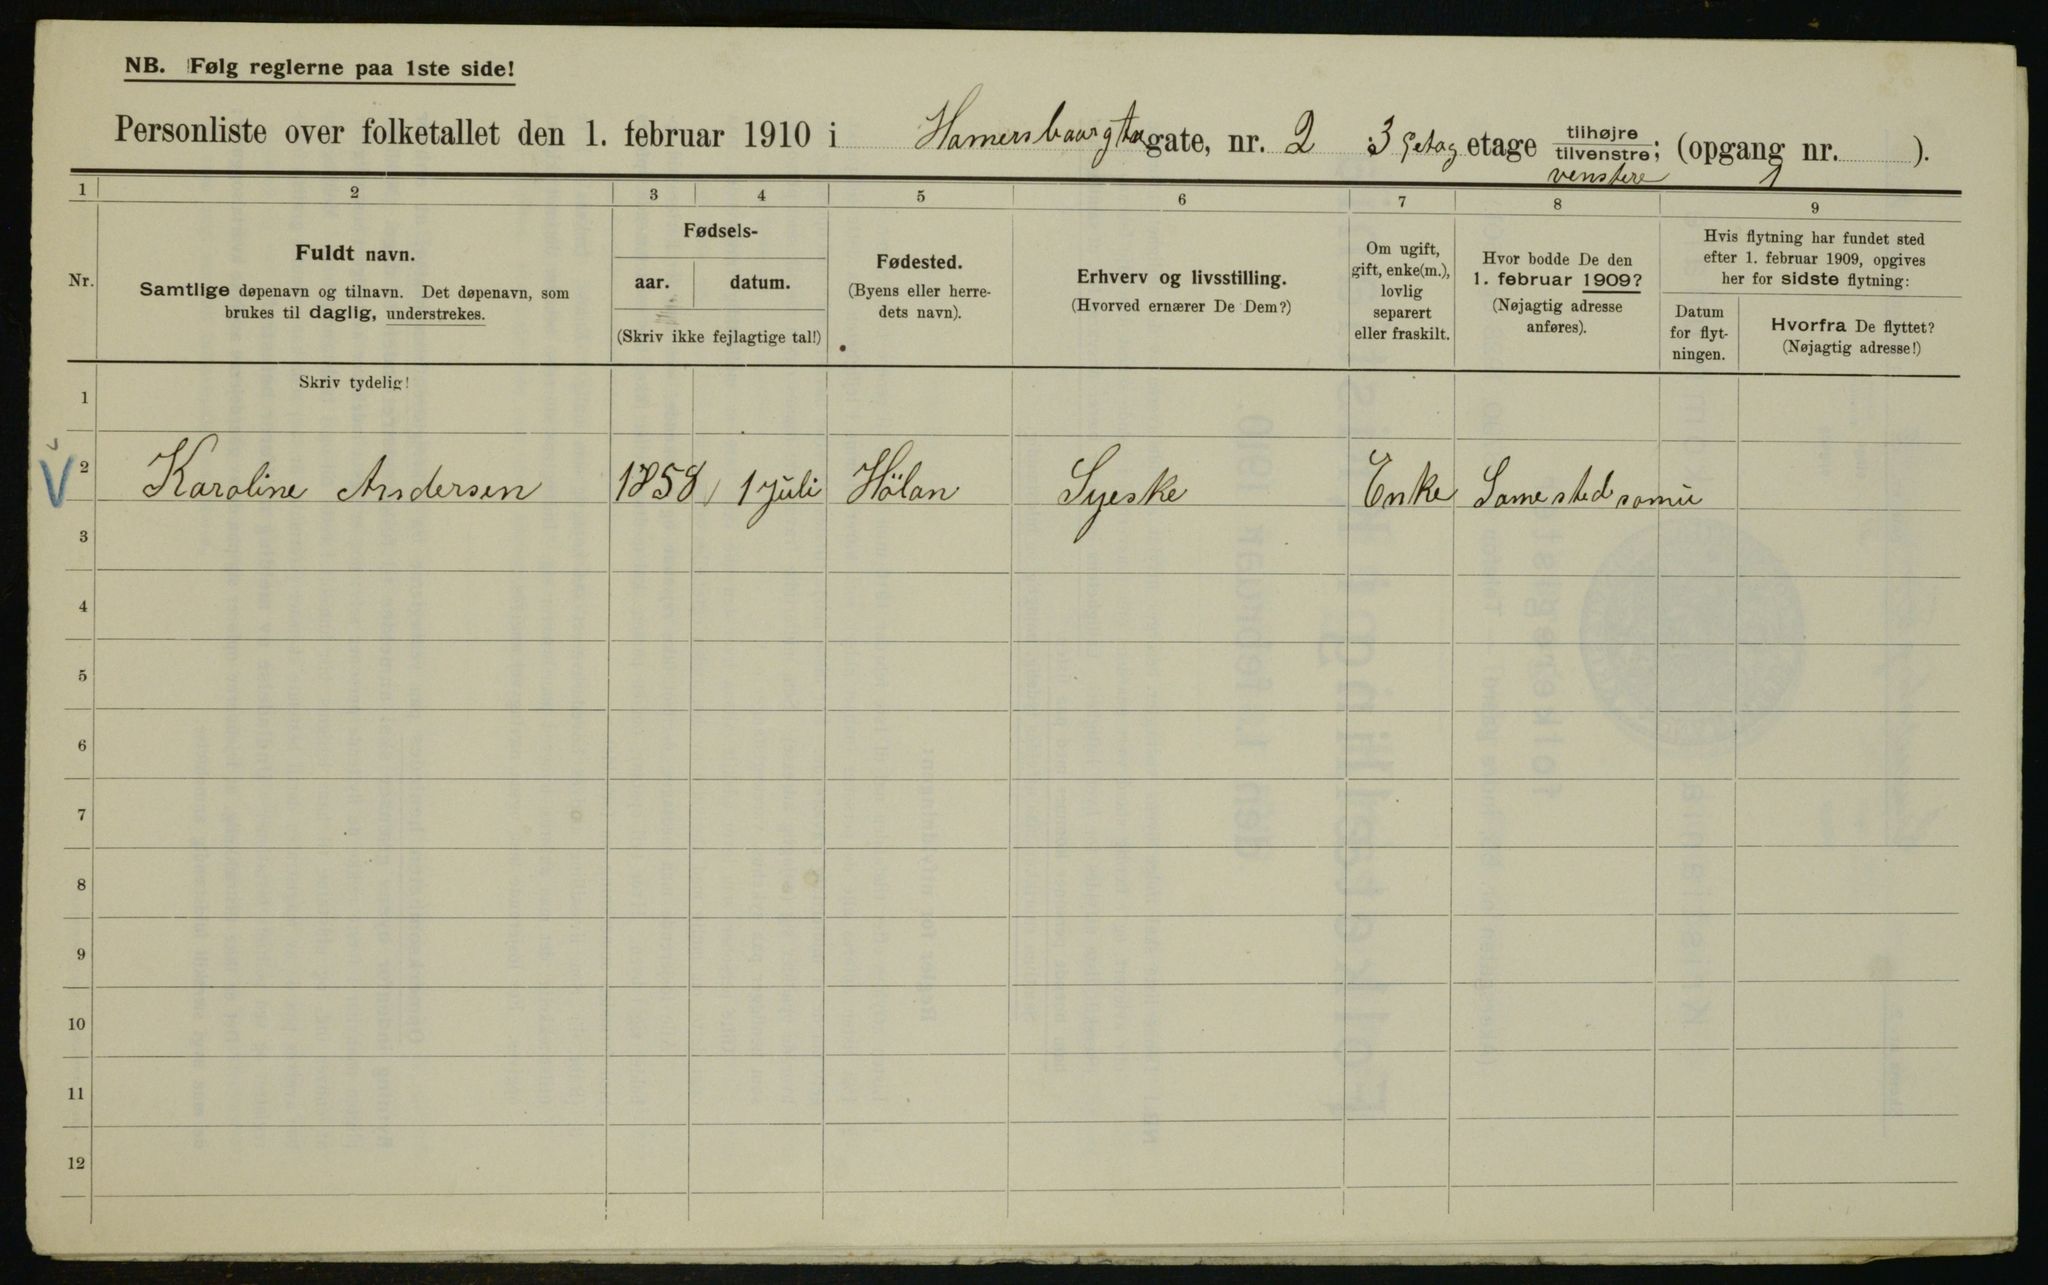 NB. Følg reglerne paa 1ste side!
Personliste over folketallet den 1. februar 1910 i Hamersbaargta gate, nr. 2 3 Getag etage tilhøjre tilvenstre; (opgang nr. ).
venstere 1
1 2 3 4 5 6 7 8 9
Nr.
Fuldt navn.
Samtlige døpenavn og tilnavn. Det døpenavn, som
brukes til daglig, understrekes.
Fødsels-
aar. datum.
(Skriv ikke fejlagtige tal!)
Fødested.
(Byens eller herre-
dets navn).
Erhverv og livsstilling.
(Hvorved ernærer De Dem?)
Om ugift,
gift, enke(m.),
lovlig
separert
eller fraskilt.
Hvor bodde De den
1. februar 1909?
(Nøjagtig adresse
anføres).
Hvis flytning har fundet sted
efter 1. februar 1909, opgives
her for sidste flytning:
Datum
for flyt-
ningen.
Hvorfra De flyttet?
(Nøjagtig adresse!)
Skriv tydelig!
1
2 Karoline Andersen 1858 1 juli Hölan Syeske Enke Same sted somii
3
4
5
6
7
8
9
10
11
12